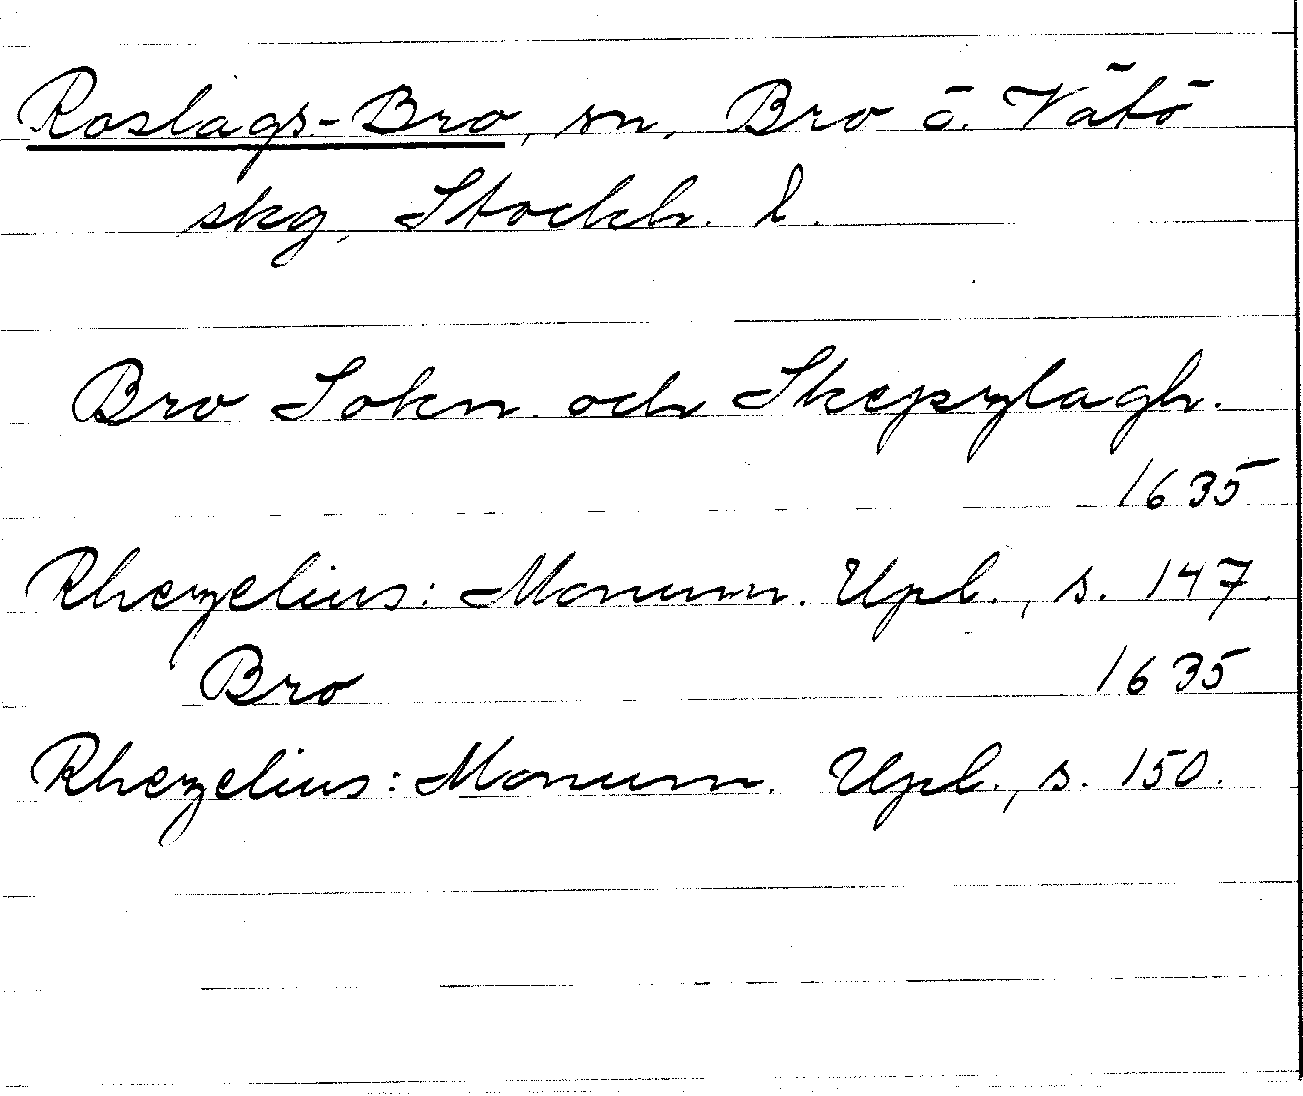 Roslags-Bro, sn, Bro o. Vätö
skg, Stockh. l.
Bro Sokn och Skepzlagh.
1635
Rhezelius: Monum. Upl., s. 147.
Bro 1635
Rhezelius: Monum. Upl., s. 150.